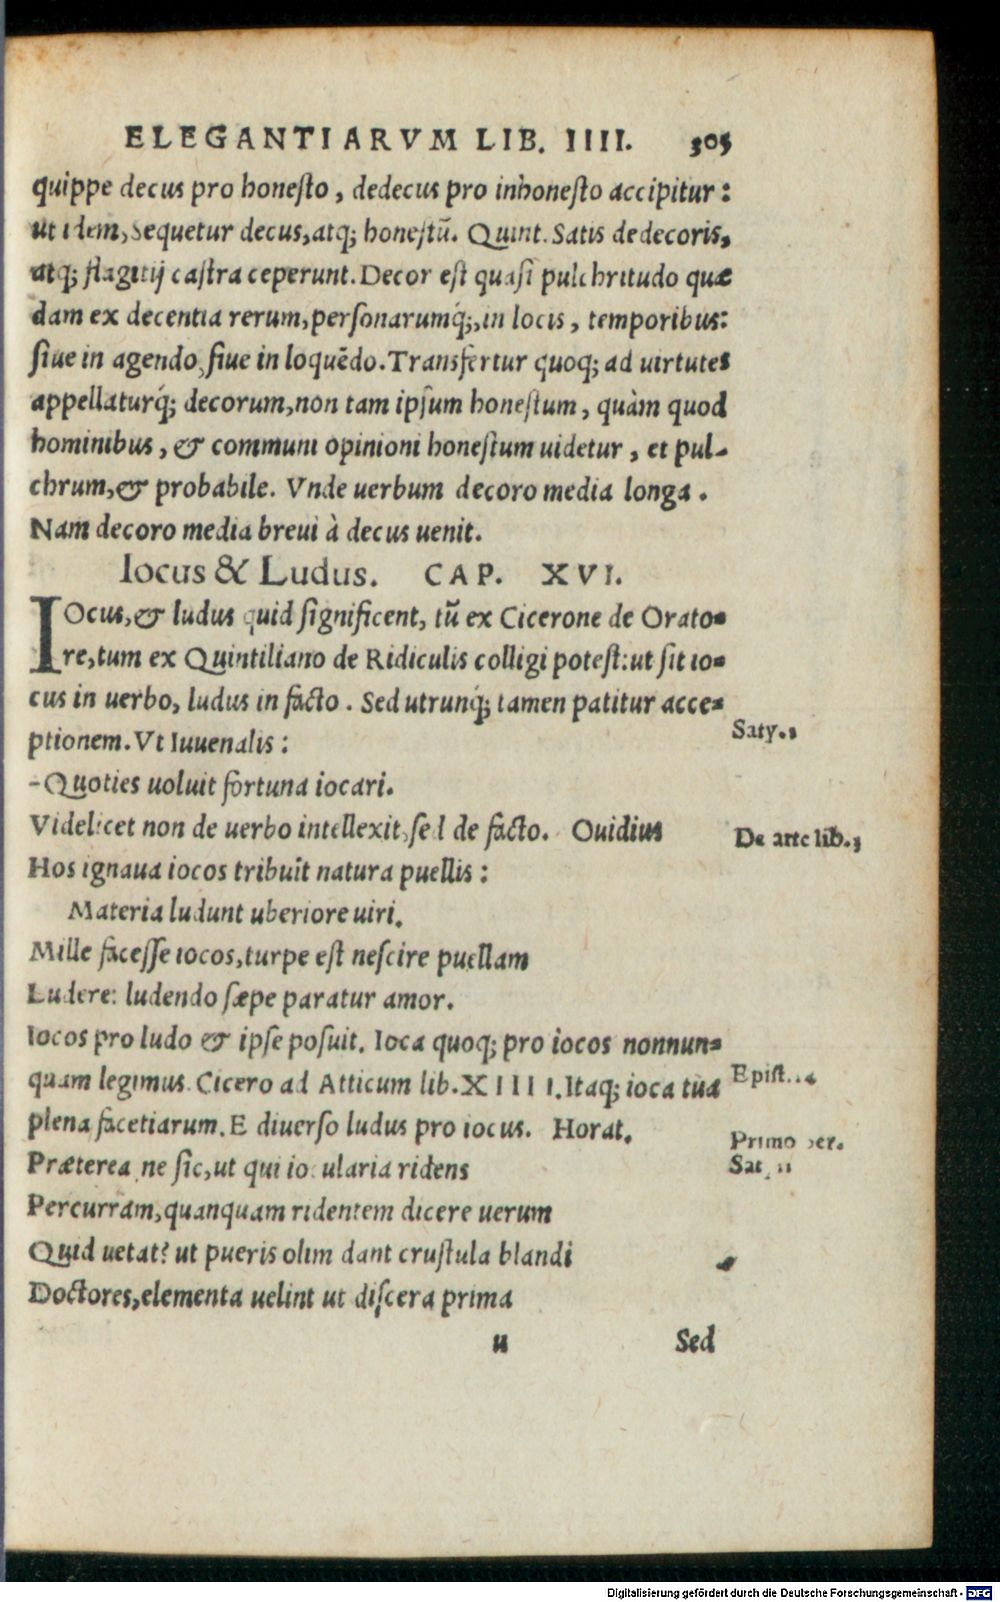 ELEGANTIARVM LIB. IIII. 305
quippe decus pro honeſto, dedecus pro inhoneſto accipitur:
ut idem, Sequetur decus, atq; honeſtũ. Quint. Satis dedecoris,
atq; flagitij caſtra ceperunt. Decor eſt quaſi pulchritudo quæ
dam ex decentia rerum, perſonarumq́;, in locis, temporibus:
ſiue in agendo, ſiue in loquẽdo. Transfertur quoq; ad uirtutes
appellaturq́; decorum, non tam ipſum honeſtum, quàm quod
hominibus, & communi opinioni honeſtum uidetur, et pul-
chrum, & probabile. Vnde uerbum decoro media longa.
Nam decoro media breui à decus uenit.
Iocus & Ludus. CAP. XVI.
IOcus, & ludus quid ſignificent, tũ ex Cicerone de Orato-
re, tum ex Quintiliano de Ridiculis colligi poteſt: ut ſit io-
cus in uerbo, ludus in facto. Sed utrunq́; tamen patitur acce-
ptionem. Vt Iuuenalis:
Saty. 3
-Quoties uoluit fortuna iocari.
Videlicet non de uerbo intellexit, ſed de facto. Ouidius
De arte lib. 3
Hos ignaua iocos tribuit natura puellis:
Materia ludunt uberiore uiri.
Mille faceſſe iocos, turpe eſt neſcire puellam
Ludere: ludendo ſæpe paratur amor.
Iocos pro ludo & ipſe poſuit. Ioca quoq; pro iocos nonnun-
quam legimus. Cicero ad Atticum lib. XIIII. Itaq; ioca tua
Epiſt.
plena facetiarum. E diuerſo ludus pro iocus. Horat.
Primo ſer.
Sat.
Præterea ne ſic, ut qui iocularia ridens
Percurram, quanquam ridentem dicere uerum
Quid uetat? ut pueris olim dant cruſtula blandi
Doctores, elementa uelint ut diſcera prima
u Sed
Digitalisierung gefördert durch die Deutsche Forschungsgemeinschaft - DFG